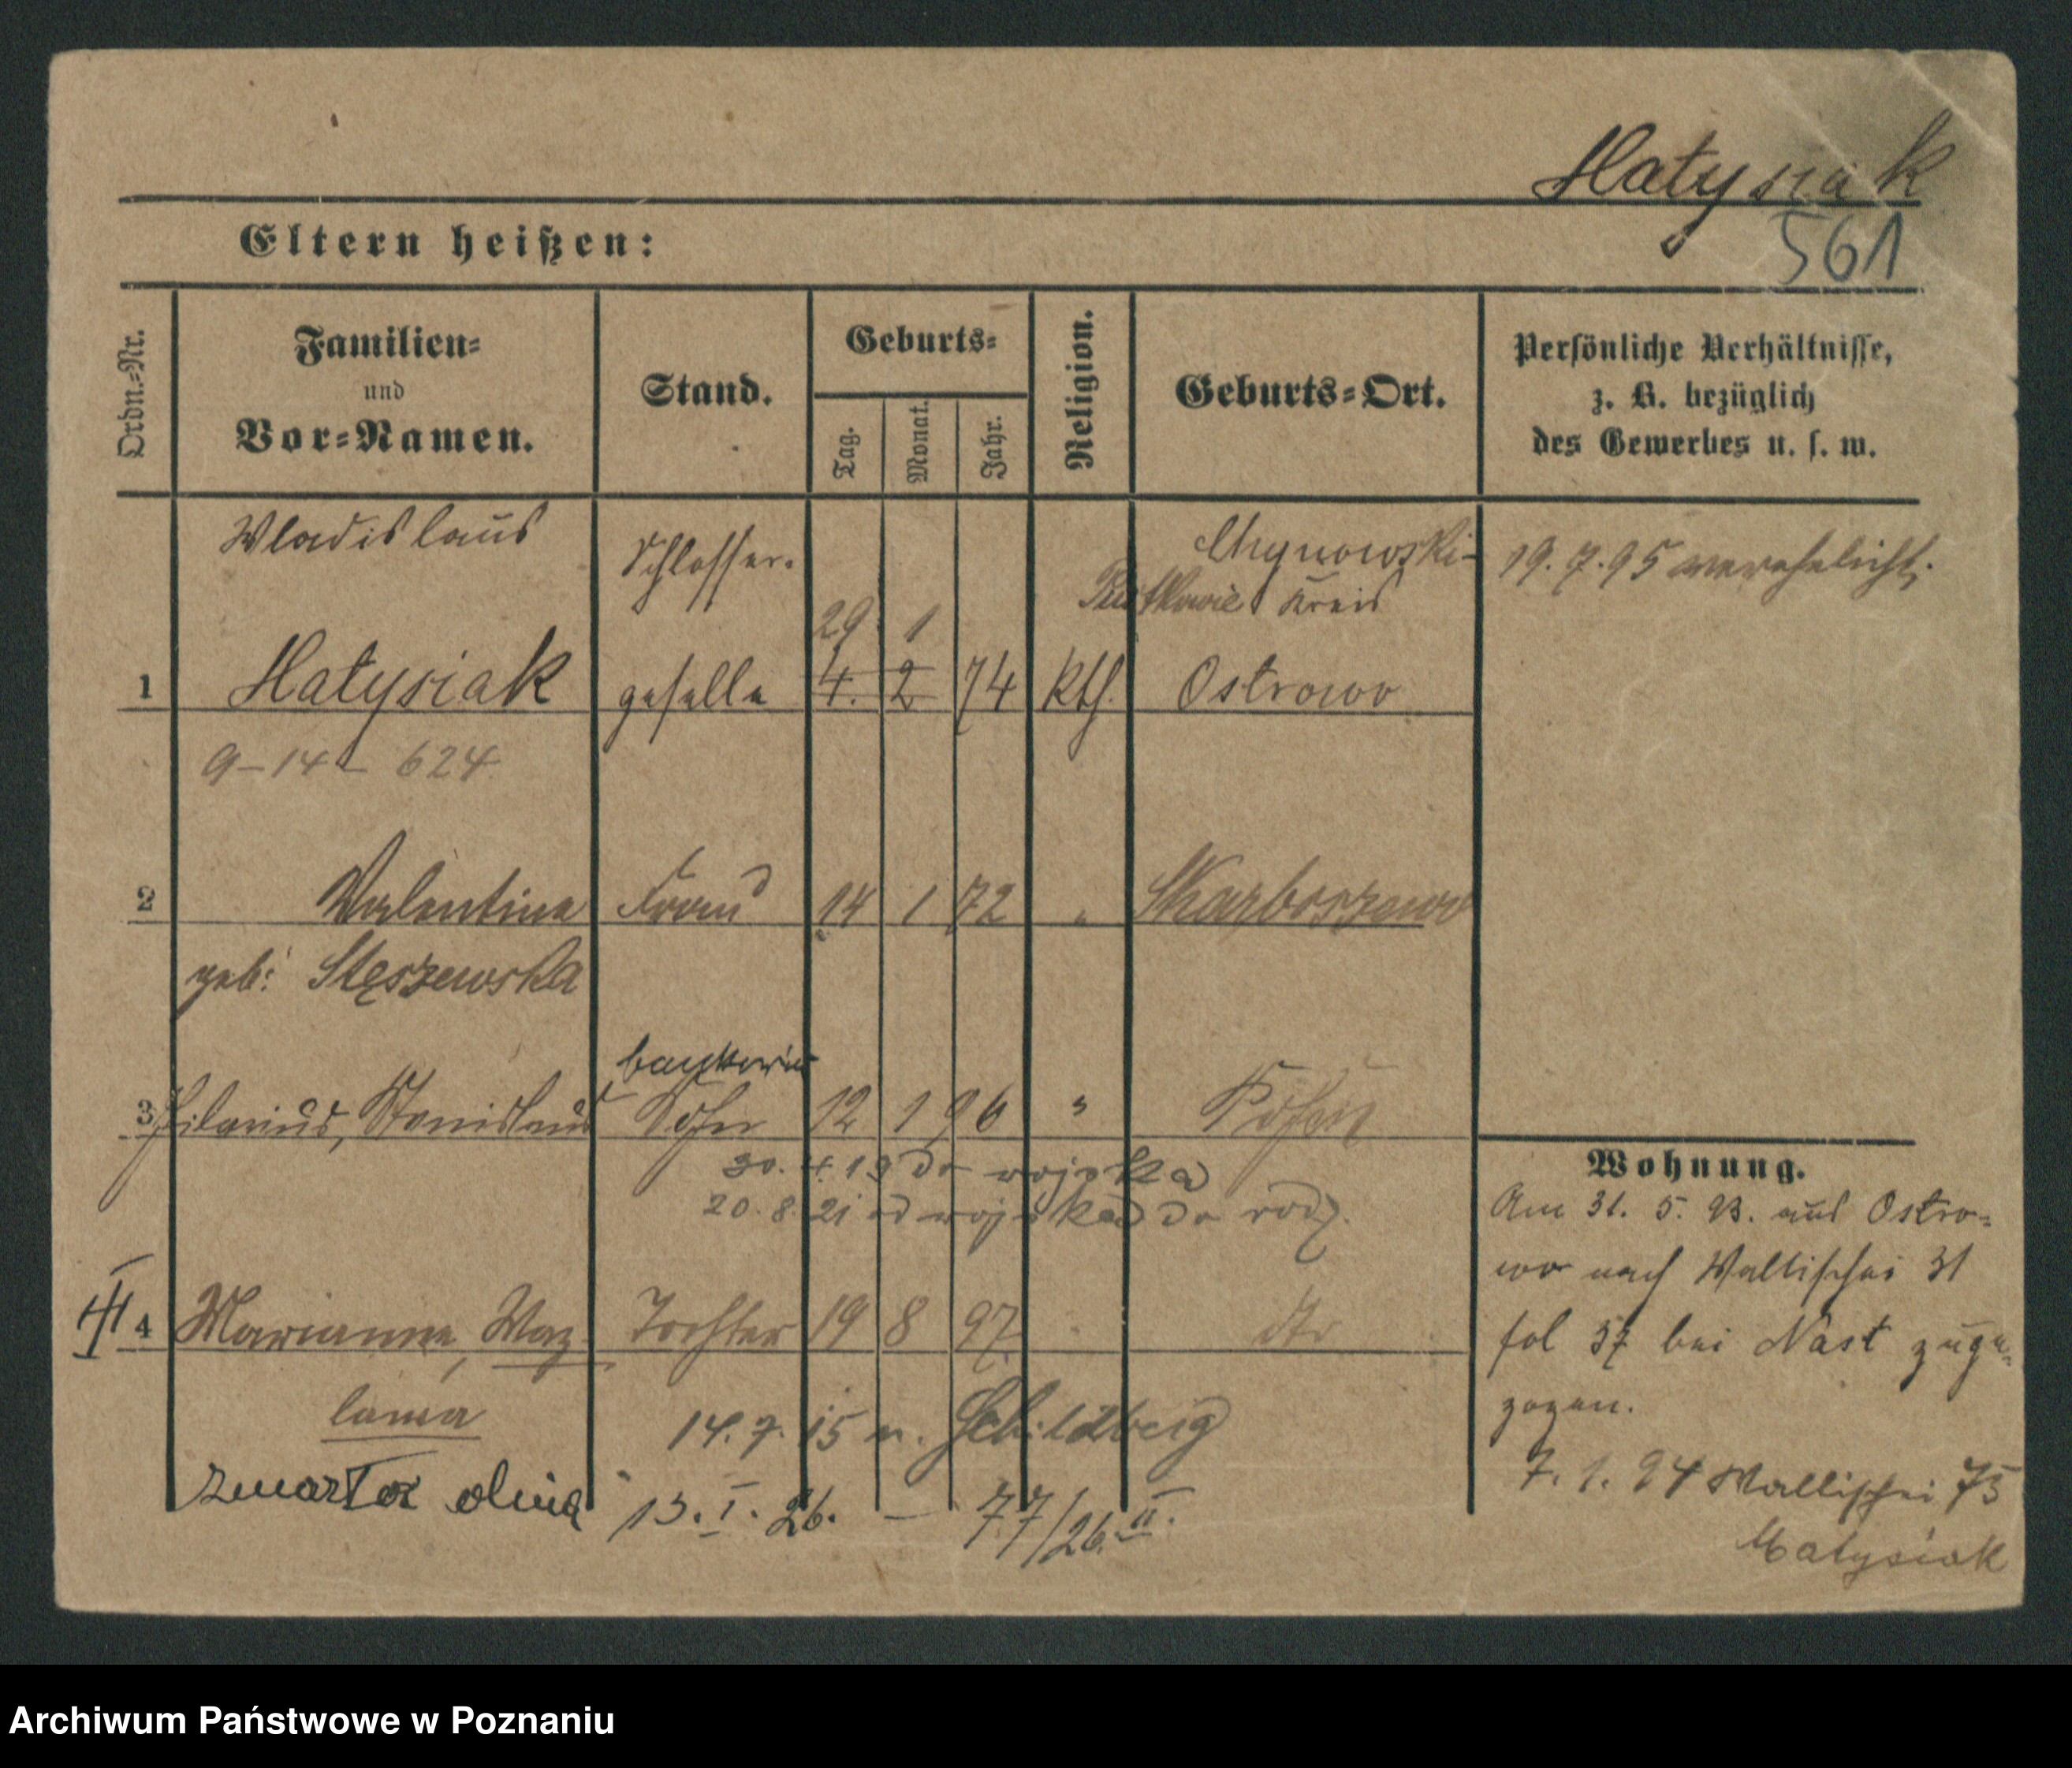 Matysiak
561
Eltern heißen:
Ordn.=Nr.
Familien=
und
Vor=Namen.
Stand.
Geburts=
Tag.
Monat.
Jahr.
Religion.
Geburts=Ort.
Persönliche Verhältnisse,
z. B. bezüglich
des Gewerbes u. s. w.
Wladislaus
Schlosser-
19.7.95 verehelicht.
Kreis
29 1
1 Matysiak geselle 4. 2 74 kth. Ostrowo
9-14- 624
2 Valentine Frau 14 1 72 " Skarboszewo
geb: Stęszewska
bankowiec
3 Hilarius, Stanislaus Sohn 12 1 96 " Posen
30.4.19 do wojska
20.8.21 od wojska do rodz.
4 Marianna, Waz- Tochter 19 8 97. dto
lawa
14.7.15 n. Schildberg
zmarła dnia 13.I.26. — 77/26.II.
Wohnung.
Am 31. 5. 93. aus Ostro=
wo nach Wallischei 31
fol 57 bei Nast zuge=
zogen.
7.1.94 Wallischei 75
Matysiak
Archiwum Państwowe w Poznaniu